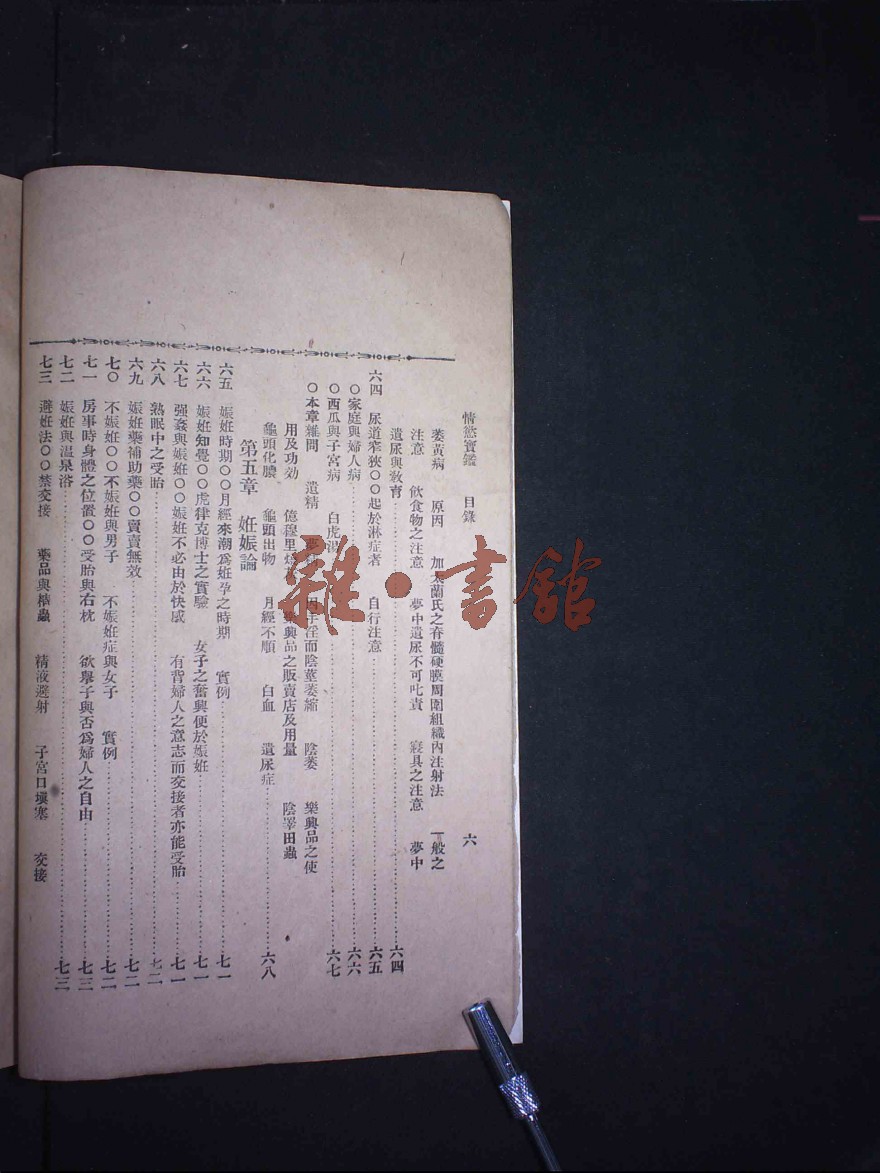 情慾寶鑑 目錄 六
萎黃病 原因 加太蘭氏之脊髓硬膜周圍組織內注射法 一般之
注意 飲食物之注意 夢中遺尿不可叱責 寢具之注意 夢中
遺尿與教育 六四
六四 尿道窄狹○○起於淋症者 自行注意 六五
○家庭與婦人病 六六
○西瓜與子宮病 白虎湯 六七
○本章雜問 遺精 因手淫而陰莖萎縮 陰萎 樂興品之使
用及功効 億穆里 樂興品之販賣店及用量 陰 田蟲
龜頭化膿 龜頭出物 月經不順 白血 遺尿症 六八
第五章 妊娠論
六五 娠妊時期○○月經來潮爲妊孕之時期 實例 七一
六六 娠妊知覺○○虎律克博士之實驗 女子之奮興便於娠妊 七一
六七 強姦與娠妊○○娠妊不必由於快感 有背婦人之意志而交接者亦能受胎 七一
六八 熟眠中之受胎 七二
六九 娠妊藥補助藥○○賣賣無效 七二
七〇 不娠妊○○不娠妊與男子 不娠妊症與女子 實例 七二
七一 房事時身體之位置○○受胎與右枕 欲舉子與否爲婦人之自由 七三
七二 娠妊與溫泉浴 七三
七三 避妊法○○禁交接 藥品與 蟲 精液避射 子宮口塡塞 交接
雜·書館